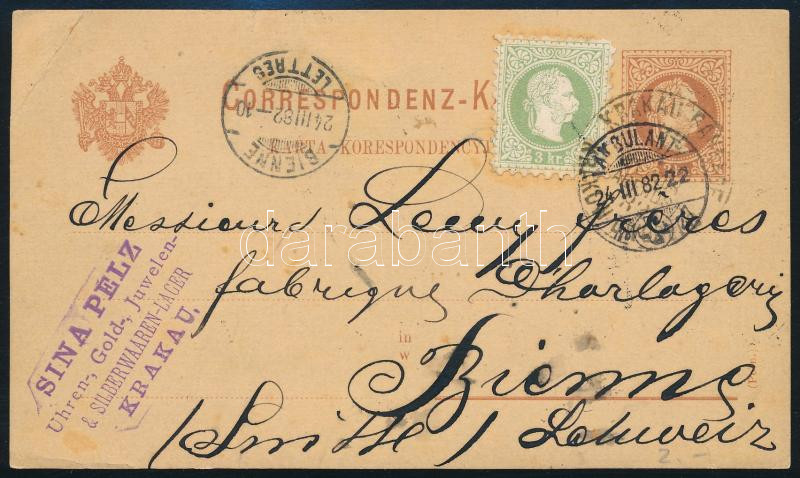 CORRESPONDENZ-K
KARTA KORESPONDENCYJ
BIENNE
24 III 82 - 10
LETTRES
3 kr
KRAKAU
AMBULANT
24 III 82 - 22
Messieurs Levy freres
fabrique D'horlogerie
in
w
Bienne
(Suisse) Schweiz
SINA PELZ
Uhren-, Gold-, Juwelen-
& SILBERWAAREN-LAGER
KRAKAU.
darabanth
2.-